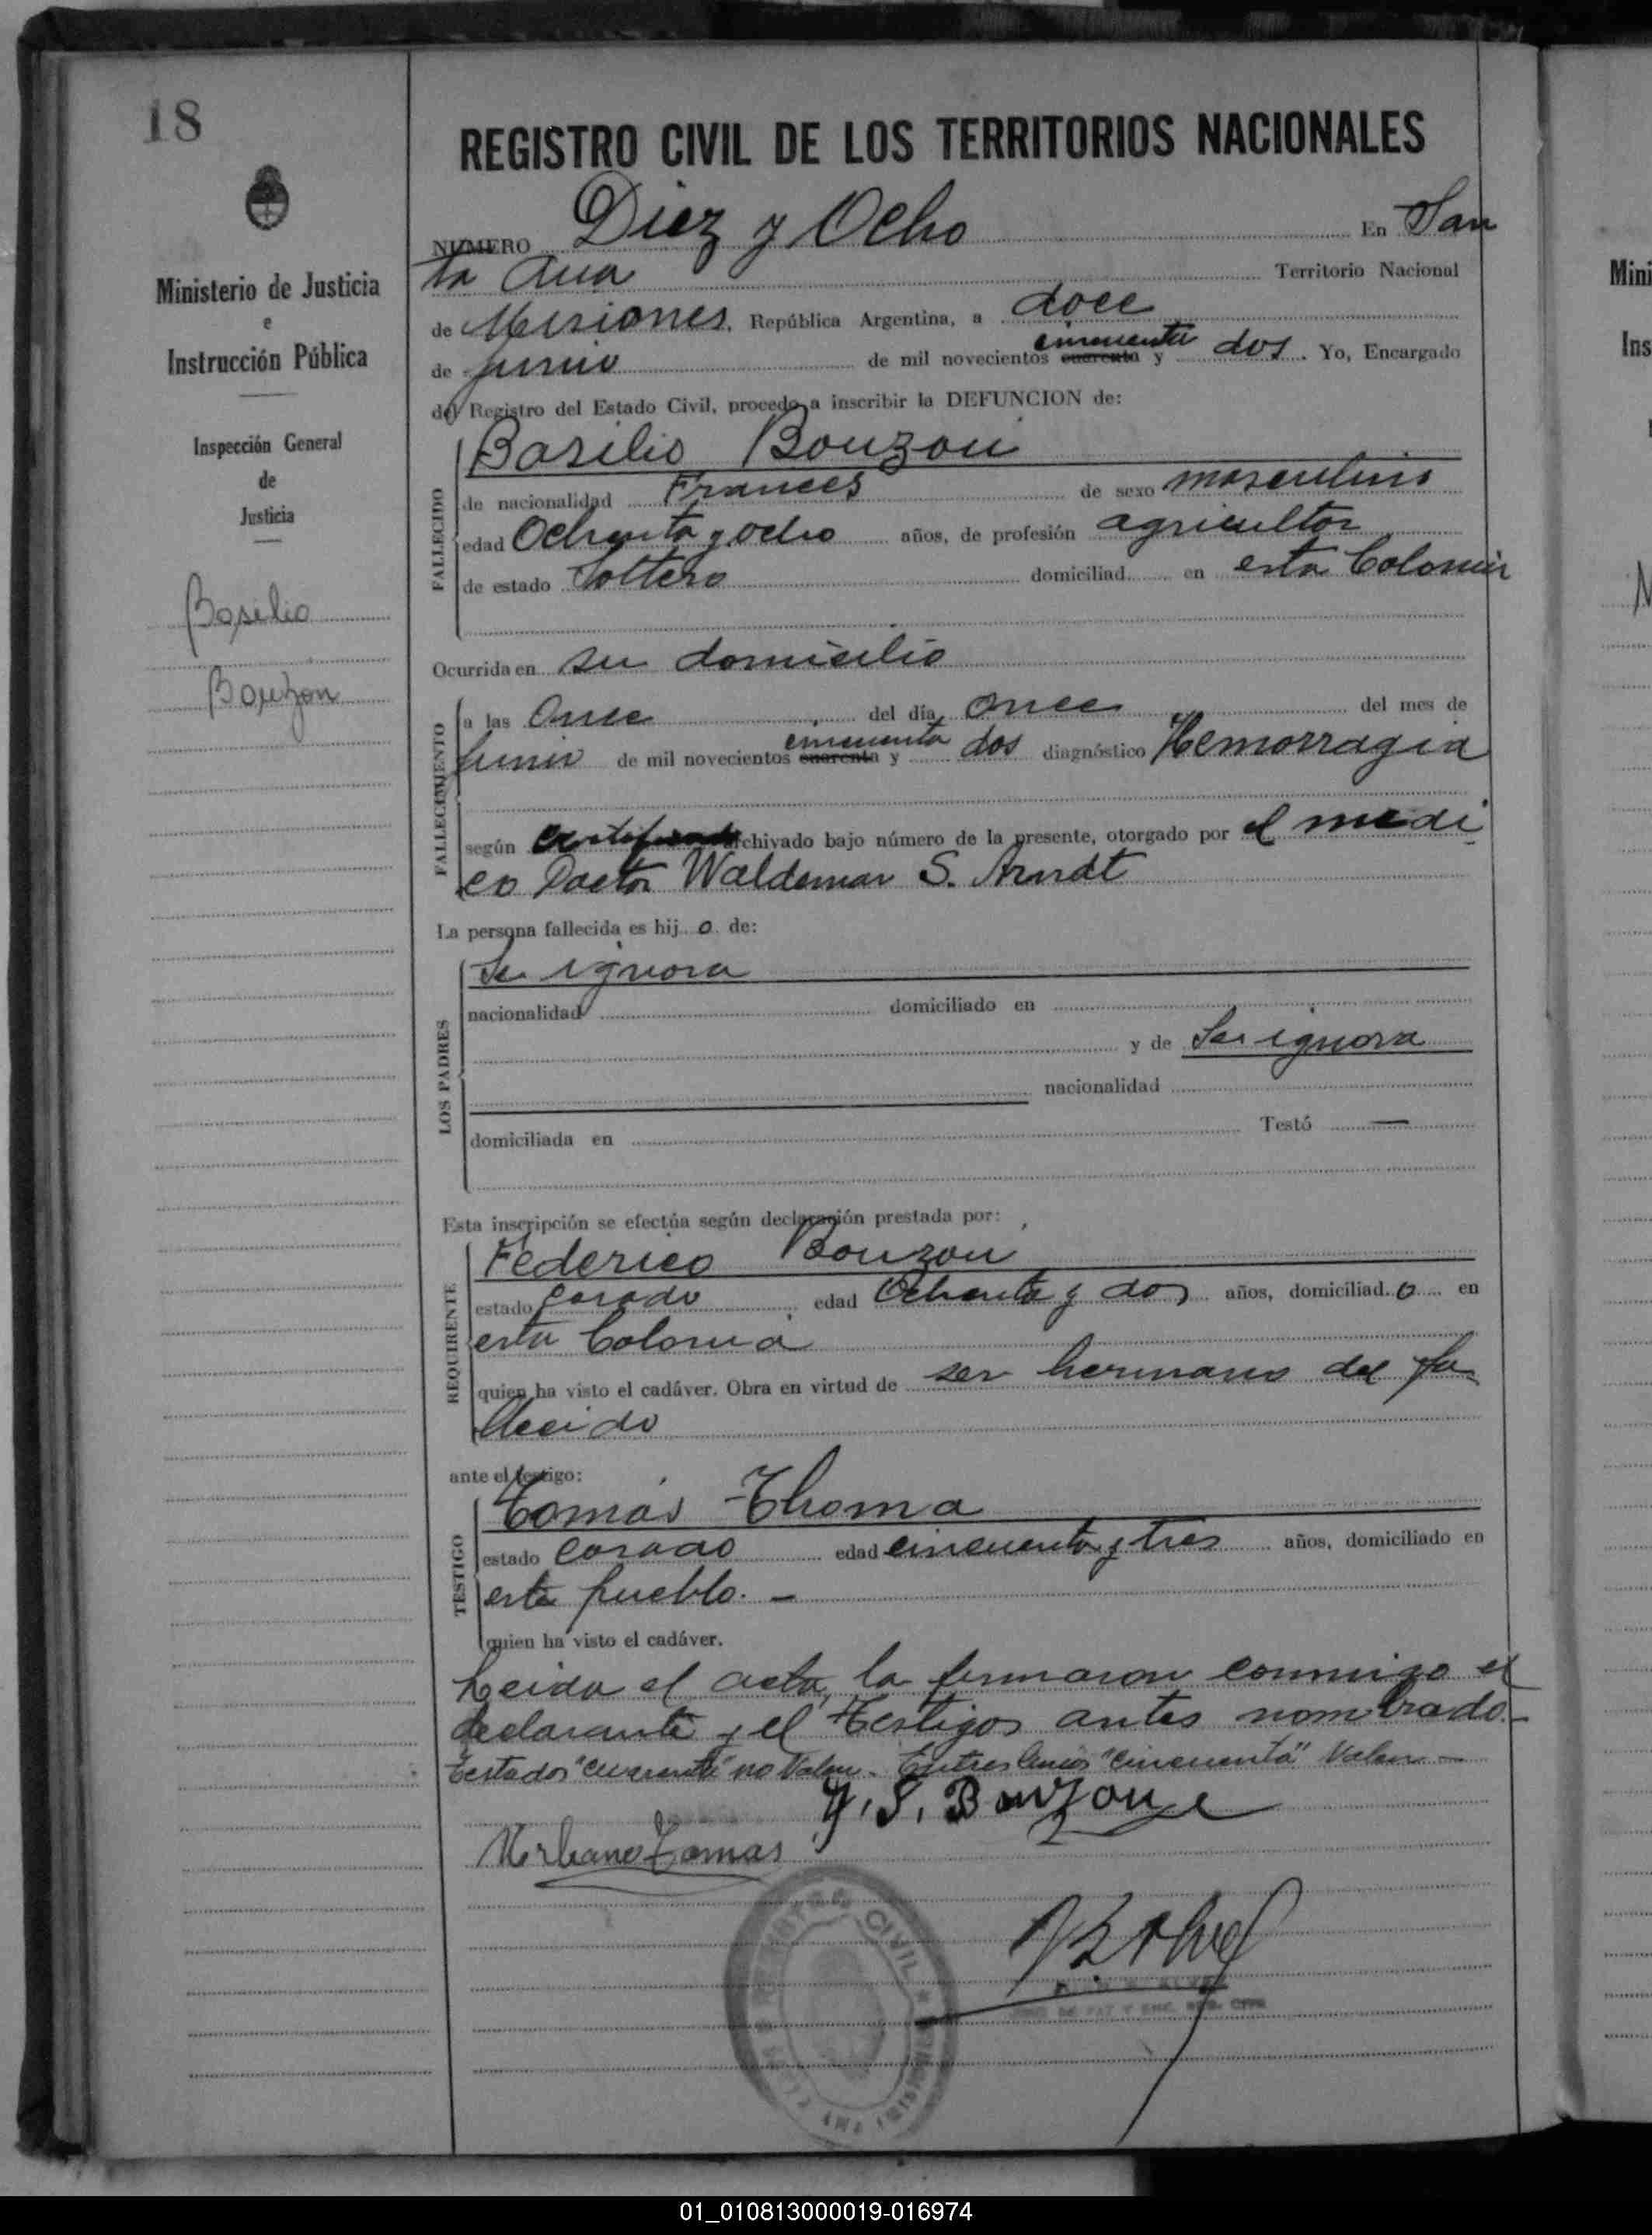 18
Ministerio de Justicia
e
Instrucción Pública
Inspección General
de
Justicia
Basilio
Bouzon
REGISTRO CIVIL DE LOS TERRITORIOS NACIONALES
NUMERO Diez y Ocho En San
ta Ana Territorio Nacional
de Misiones, República Argentina, a doce
de junio de mil novecientos cuarenta cincuenta y dos. Yo, Encargado
del Registro del Estado Civil, procedo a inscribir la DEFUNCION de:
FALLECIDO
Basilio Bouzon
de nacionalidad Francés de sexo masculino
edad Ochenta y ocho años, de profesión agricultor
de estado Soltero domiciliad en esta Colonia
Ocurrida en su domicilio
FALLECIMIENTO
a las Once del día once del mes de
junio de mil novecientos cuarenta cincuenta y dos diagnóstico Hemorragia
según certificado archivado bajo número de la presente, otorgado por el medi
co Doctor Waldemar S. Arndt
La persona fallecida es hijo de:
LOS PADRES
Se ignora
nacionalidad domiciliado en
y de Se ignora
nacionalidad
domiciliada en Testó —
Esta inscripción se efectúa según declaración prestada por:
REQUIRENTE
Federico Bouzon
estado Casado edad Ochenta y dos años, domiciliado en
esta Colonia
quien ha visto el cadáver. Obra en virtud de ser hermano del fa
llecido
ante el testigo:
TESTIGO
Tomás Thoma
estado Casado edad cincuenta y tres años, domiciliado en
este pueblo. —
quien ha visto el cadáver.
Leida el acta, la firmaron conmigo el
declarante y el testigos antes nombrado.—
Testados "cuarenta" no Valen. Entres lineas "cincuenta" Valen —
F. S. Bouzon
Urbano Tomas
REGISTRO CIVIL
SANTA ANA (MISIONES)
JUEZ DE PAZ Y ENC. REG. CIVIL
Mini
Ins
01_010813000019-016974